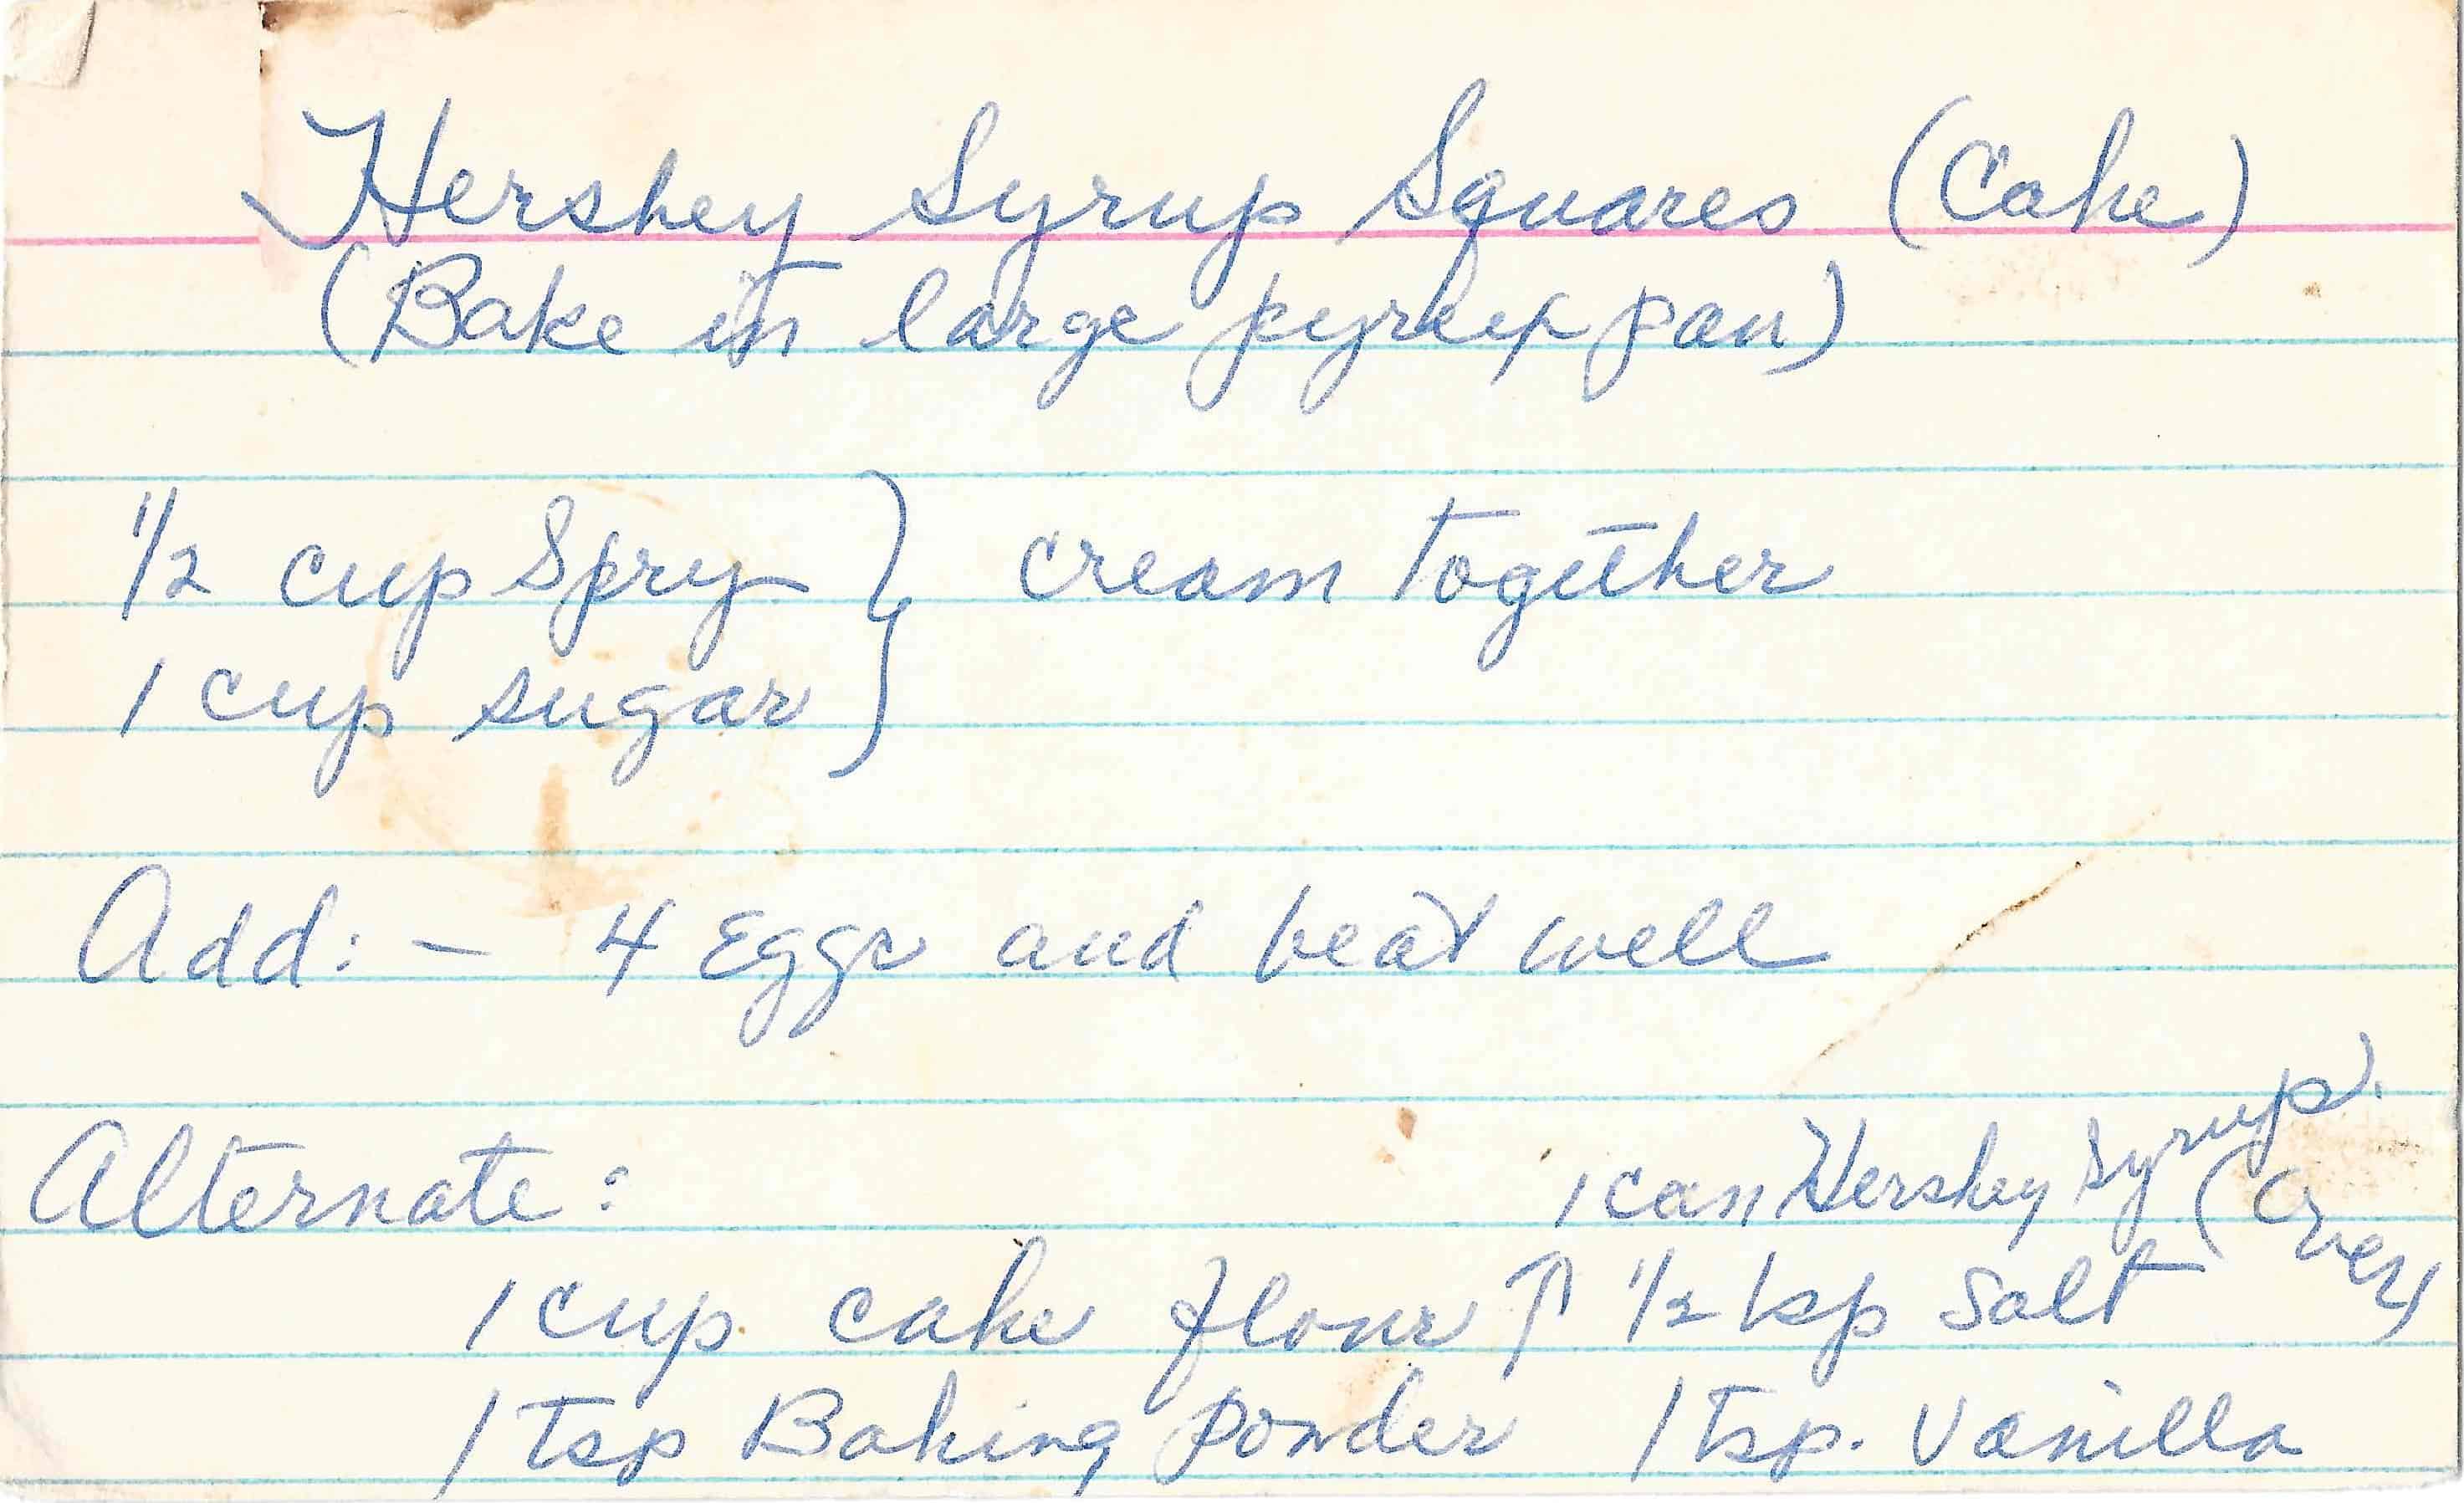 Hershey Syrup Squares (Cake)
(Bake in large pyrex pan)
1/2 cup Spry } cream together
1 cup sugar
Add: — 4 Eggs and beat well
Alternate: 1 can Hershey Syrup. (Over)
1 cup cake flour ↑ 1/2 tsp Salt
1 tsp Baking Powder 1 tsp. Vanilla